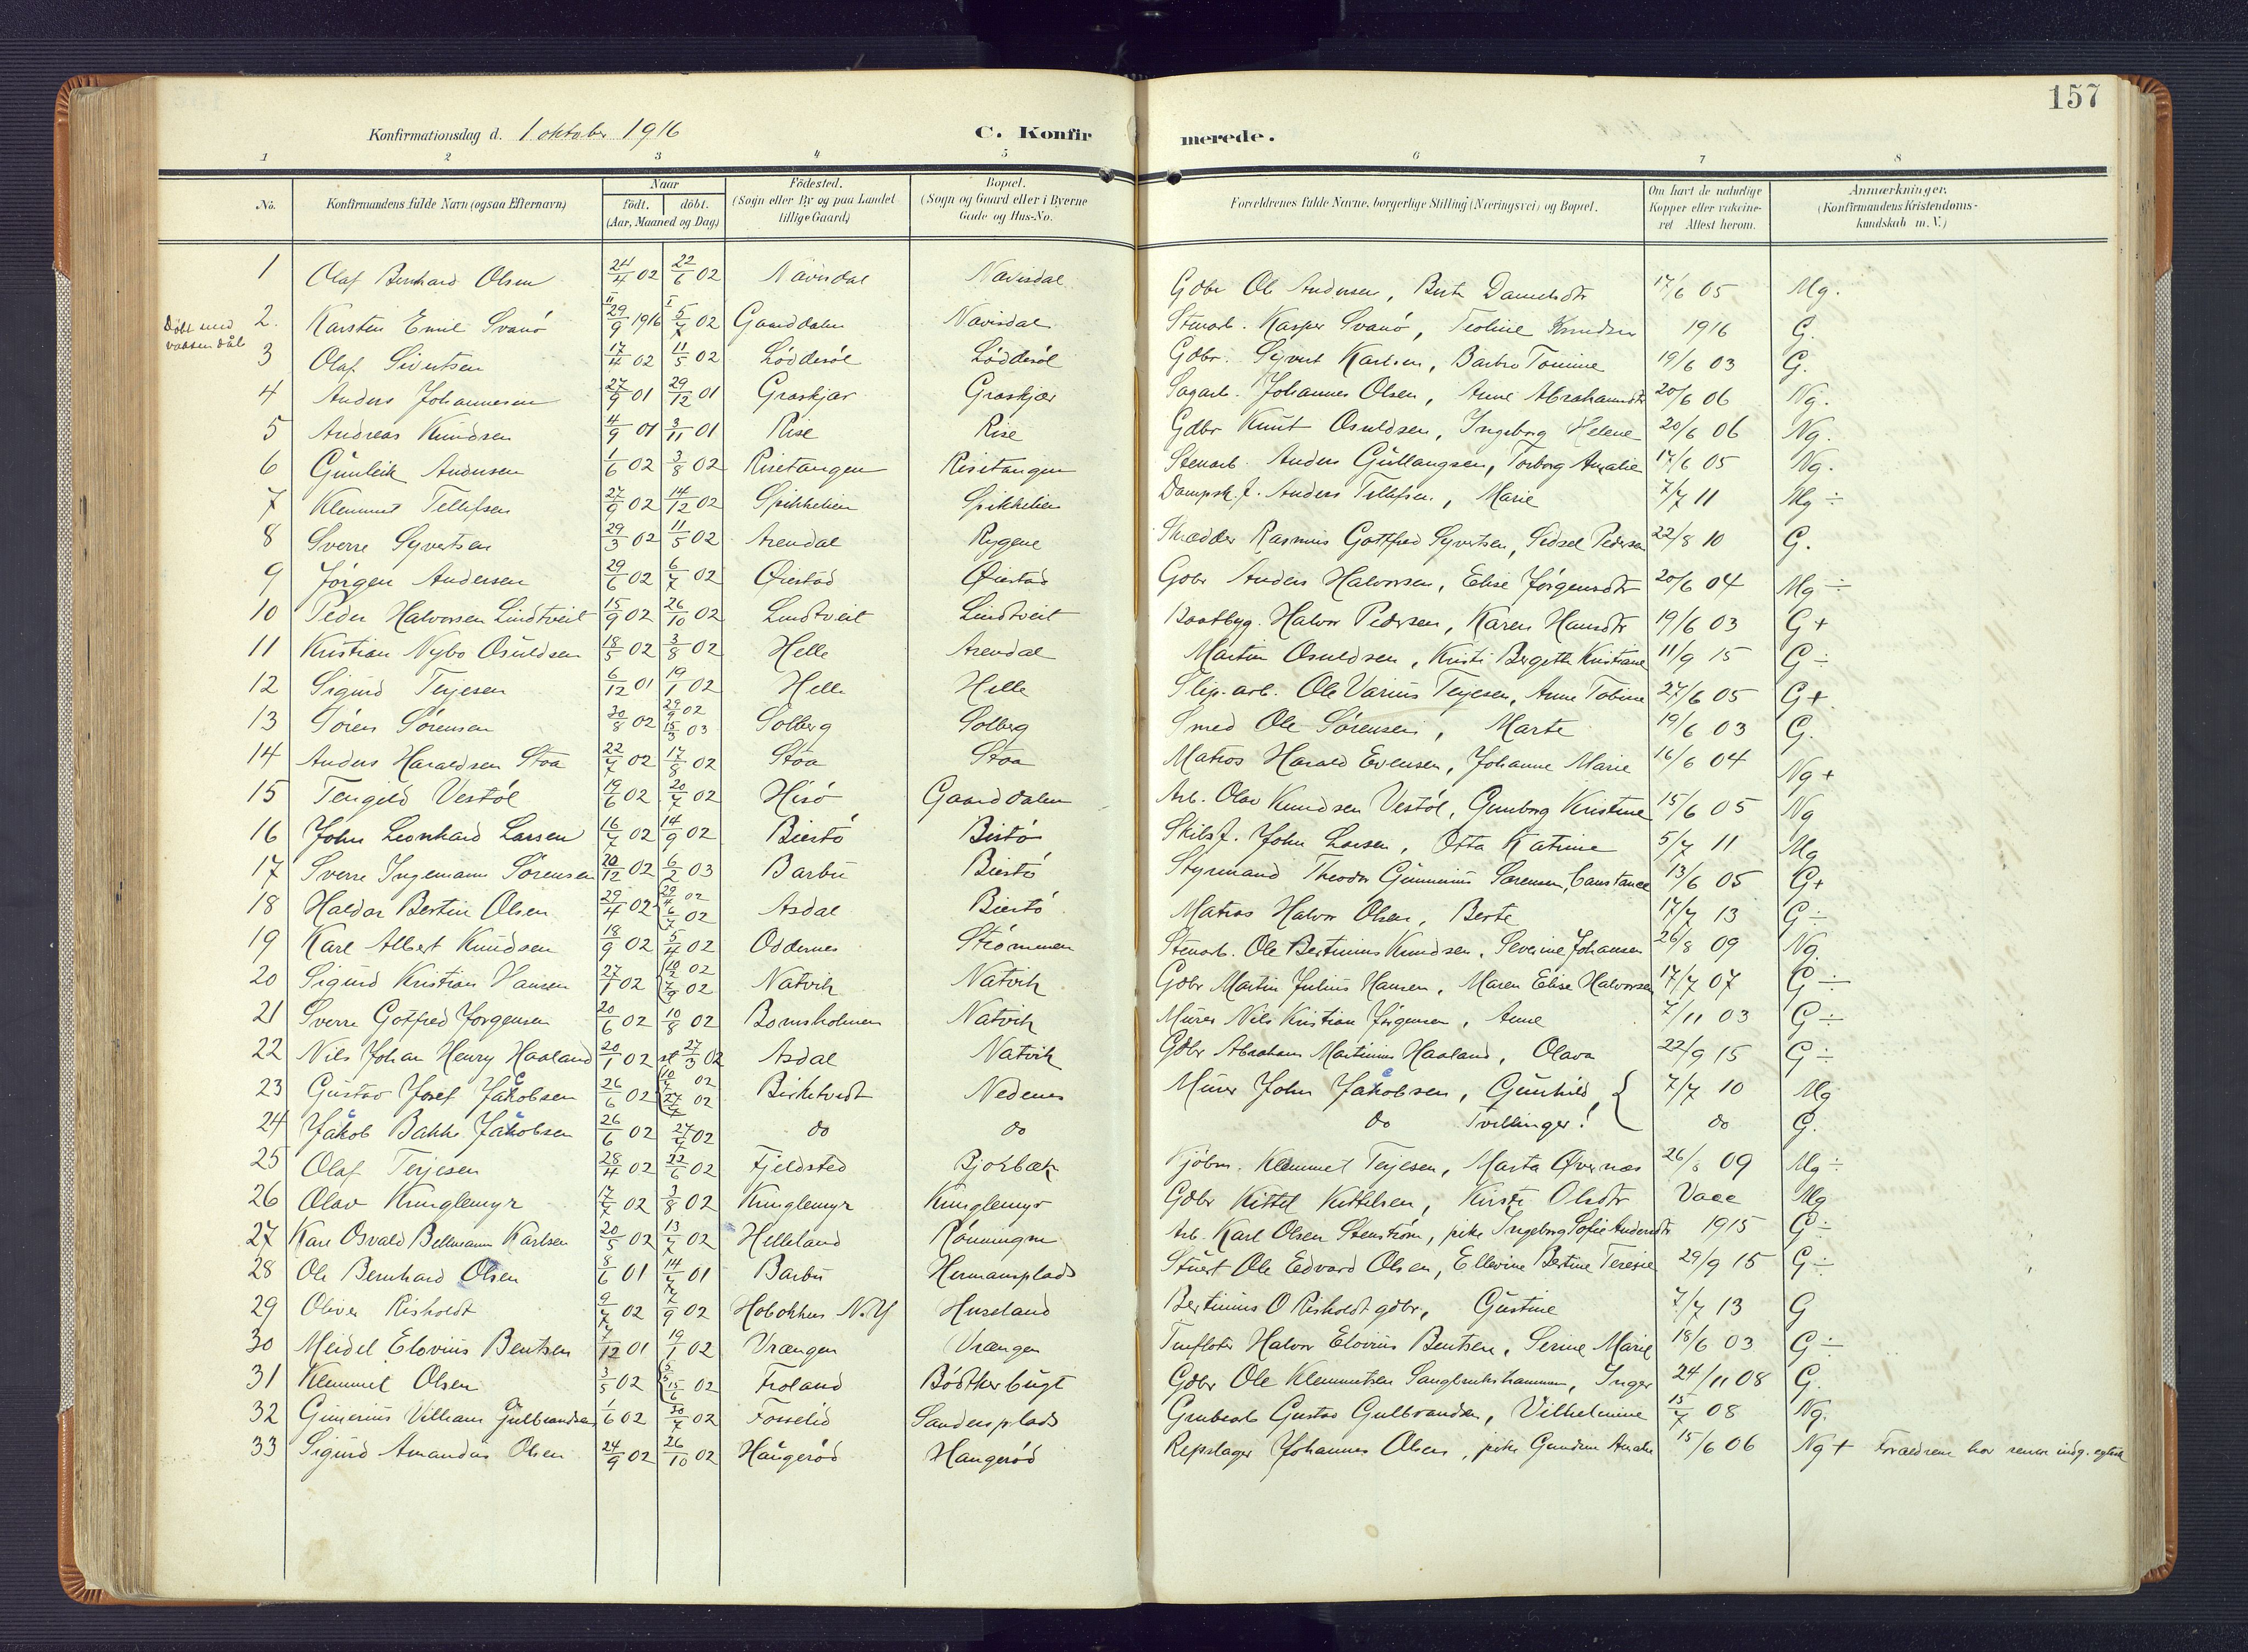 157
Konfirmationsdag d. 1. oktober 1916 C. Konfirmerede.
1 2 3 4 5 6 7 8
No. Konfirmandens fulde Navn (ogsaa Efternavn) Naar født. døbt. (Aar, Maaned og Dag) Fødested. (Sogn eller By og paa Landet tillige Gaard) Bopæl. (Sogn og Gaard eller i Byerne Gade og Hus-No. Forældrenes fulde Navne, borgerlige Stilling (Næringsvei) og Bopæl. Om havt de naturlige Kopper eller vakcineret Attest herom. Anmærkninger. (Konfirmandens Kristendomskundskab m. V.)
1 Olaf Bernhard Olsen 24/4 02 22/6 02 Navisdal Navisdal Gdbr Ole Andersen, Berte Danielsdtr 17/6 05 Mg.
Døbt med vaaben dåb
2. Karsten Emil Svanö 29/9 1916 5/7 02 Gaarddalen Navisdal Stenarb. Kasper Svanö, Teoline Knudsen 1916 G.
3 Olaf Sivertsen 17/4 02 11/5 02 Löddesöl Löddesöl Gdbr. Syvert Karlsen, Barbro Tomine 19/6 03 G.
4 Anders Johannesen 27/9 01 29/12 01 Graskjær Graskjær Sagarb. Johannes Olsen, Anne Abrahamsdtr 20/6 06 Ng.
5 Andreas Knudsen 4/9 01 3/11 01 Rise Rise Gdbr Knut Osuldsen, Ingeborg Helene 20/6 06 Ng.
6 Gunleik Andersen 1/6 02 3/8 02 Risetangen Risetangen Stenarb. Anders Gullangsen, Torborg Amalie 17/6 05 Ng.
7 Klemmet Tellefsen 27/9 02 14/12 02 Spikkelien Spikkelien Dampsk.f. Anders Tellefsen, Marie 7/7 11 Mg ÷
8 Sverre Syvertsen 29/3 02 11/5 02 Arendal Rygene Skrædder Rasmus Gottfred Syvertsen, Sidsel Pedersen 22/8 10 G.
9 Jörgen Andersen 29/6 02 6/7 02 Øiestad Øiestad Gdbr Anders Halvorsen, Elise Jörgensdtr 20/6 04 Mg ÷
10 Peder Halvorsen Lindtveit 15/9 02 26/10 02 Lindtveit Lindtveit Baatbyg. Halvor Pedersen, Karen Hansdtr 19/6 03 G +
11 Kristian Nybo Osuldsen 18/5 02 3/8 02 Helle Arendal Martin Osuldsen, Kristi Bergette Kristiane 11/9 15 G ÷
12 Sigurd Terjesen 6/12 01 19/1 02 Helle Helle Slip.arb. Ole Varius Terjesen, Anne Tobine 27/6 05 G +
13 Sören Sörensen 30/8 02 29/9 02 15/3 03 Solberg Solberg Smed Ole Sörensen, Marte 19/6 03 G.
14 Anders Haraldsen Stoa 22/7 02 17/8 02 Stoa Stoa Matros Harald Evensen, Johanne Marie 16/6 04 Ng +
15 Tengeld Vestöl 19/6 02 20/7 02 Hisö Gaarddalen Arb. Olav Knudsen Vestöl, Gunborg Kristine 15/6 05 Ng
16 John Leonhard Larsen 16/7 02 14/9 02 Biestö Bistö Skibsf. John Larsen, Otta Katrine 5/7 11 Mg
17 Sverre Ingemann Sörensen 20/12 02 6/2 03 Barbu Biestö Styrmand Theodor Gunnerius Sørensen, Constance 13/6 05 G +
18 Haldor Bertin Olsen 29/4 02 29/4 02 6/7 02 Asdal Biestö Matros Halvor Olsen, Berte 17/7 13 G ÷
19 Karl Albert Knudsen 18/9 02 5/4 02 Oddernes Strömmen Stenarb. Ole Bertinius Knudsen, Severine Johansen 26/8 09 Ng.
20 Sigurd Kristian Hansen 27/1 02 10/2 02 7/9 02 Natvik Natvik Gdbr Martin Julius Hansen, Maren Elise Halvorsen 17/7 07 G ÷
21 Sverre Gotfred Jorgensen 20/6 02 10/8 02 Bomsholmen Natvik Murer Nils Kristian Jørgensen, Anne 7/11 03 G ÷
22 Nils Johan Henry Haaland 20/1 02 27/3 02 Asdal Natvik Gdbr Abraham Martinius Haaland, Olava 22/9 15 G ÷
23 Gustav Josef Jakobsen 26/6 02 10/7 02 27/7 02 Birketvedt Nedenes Murer John Jakobsen, Gunhild, 7/7 10 Mg
24 Jakob Bakke Jakobsen 26/6 02 27/7 02 do do do Tvillinger! do G.
25 Olaf Terjesen 28/4 02 22/6 02 Fjeldsted Bjorbæk Kjöbm. Klemmet Terjesen, Marta Övernæs 26/8 09 Mg ÷
26 Olav Kringlemyr 17/7 02 3/8 02 Kringlemyr Kringlemyr Gdbr Kittel Kittelsen, Kirsti Olsdtr Vacc Mg
27 Karl Osvald Bellmann Karlsen 20/5 02 13/7 02 Helleland Rönningen Arb. Karl Olsen Stenström, pike Ingeborg Sofie Andersdtr 1915 G ÷
28 Ole Bernhard Olsen 8/6 01 14/7 01 Barbu Hermansplads Stuert Ole Edvard Olsen, Ellevine Bertine Teresie 29/9 15 G ÷
29 Oliver Risholdt 9/7 02 7/9 02 Hobokken N.Y Huseland Bertinius O Risholdt gdbr, Gustine 7/7 13 G
30 Meidel Elovius Bentsen 7/12 01 19/1 02 Vrængen Vrængen Tmfloter Halvor Elovius Bentsen, Serine Marie 18/6 03 G ÷
31 Klemmet Olsen 3/5 02 15/6 02 Froland Bödkerbugt Gdbr Ole Klemmetsen Sangbrukshammen, Inger 24/11 08 G.
32 Gunerius Vilham Gulbrandsen 1/6 02 30/7 02 Fosselid Sandersplads Grubearb Gustav Gulbrandsen, Vilhelmine 15/7 08 Ng.
33 Sigurd Amandus Olsen 24/9 02 26/10 02 Haugeröd Haugeröd Repslager Johannes Olsen, pike Gundine Amalie 15/6 06 Ng + Forældrene har senere indg. egtsk